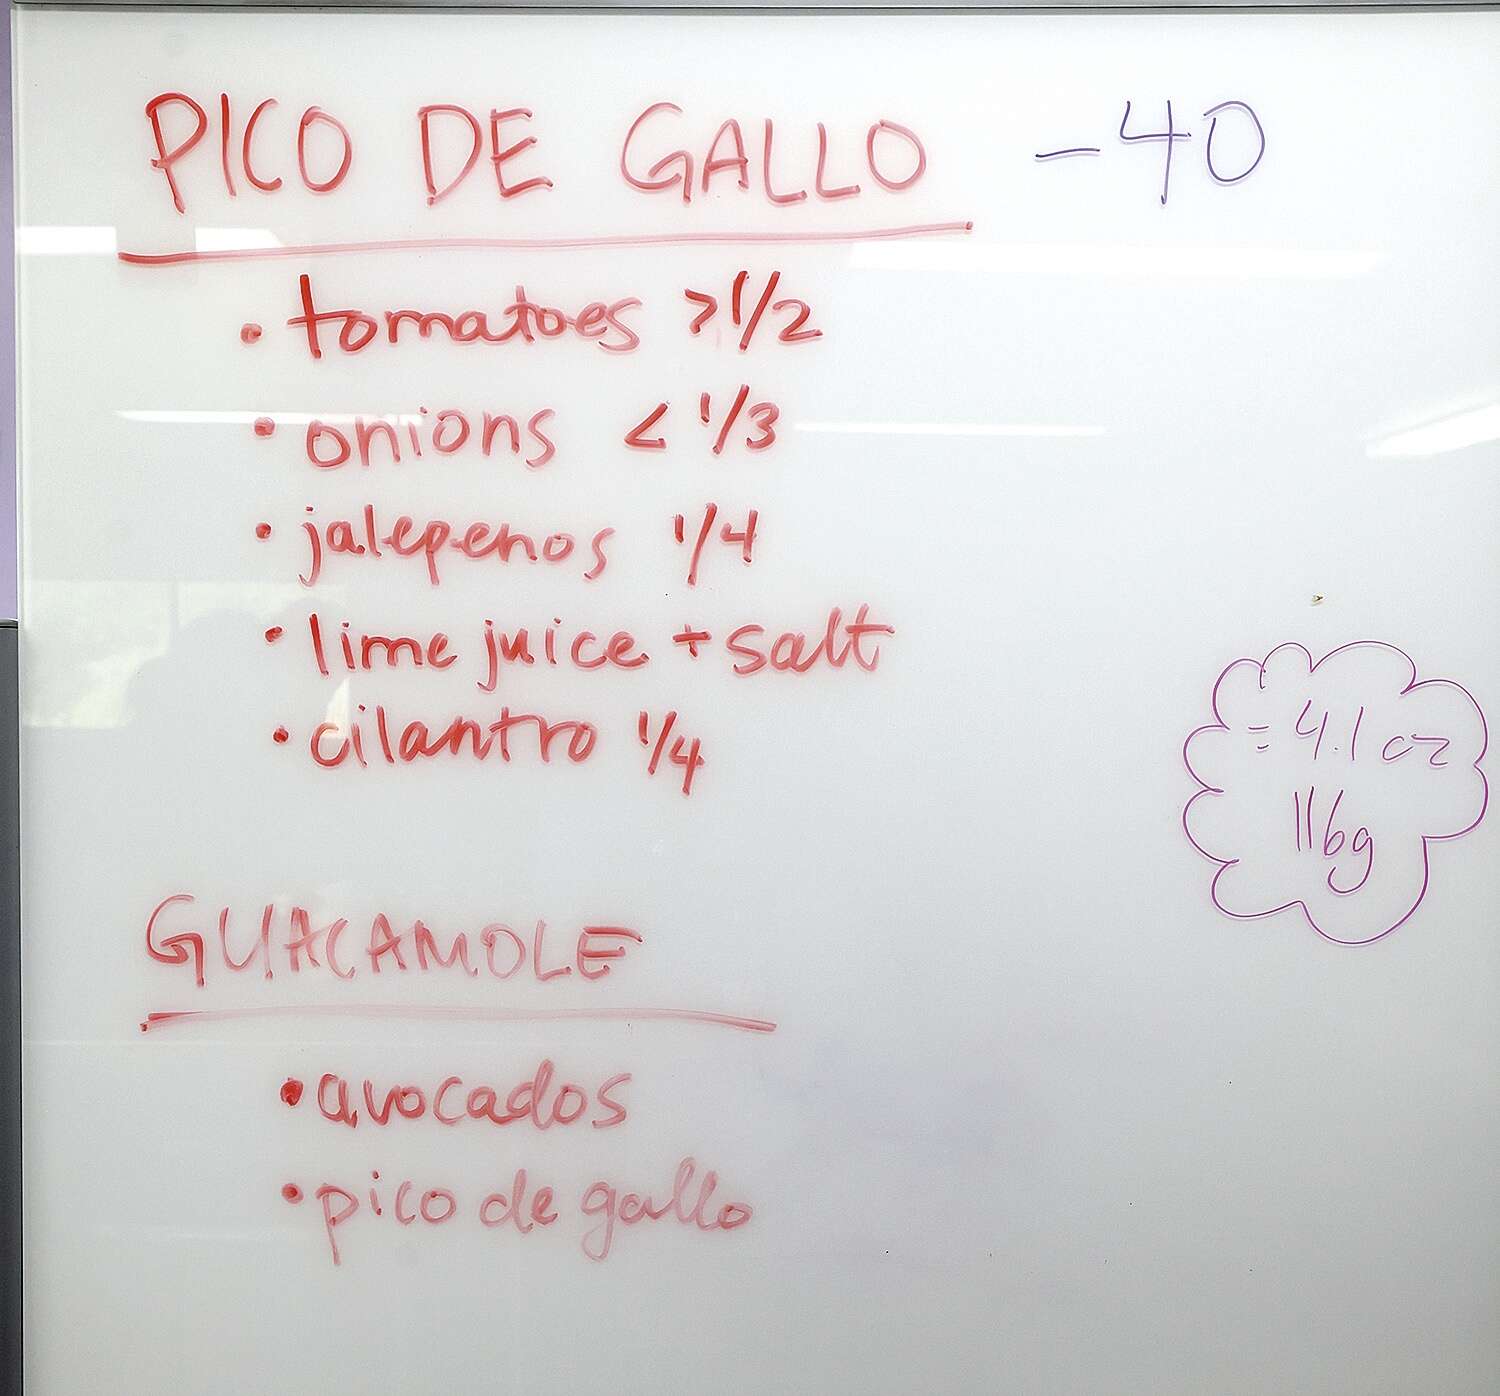 PICO DE GALLO -40
• tomatoes >1/2
• onions < 1/3
• jalepenos 1/4
• lime juice + salt
• cilantro 1/4
= 4.1 oz
116g
GUACAMOLE
• avocados
• pico de gallo